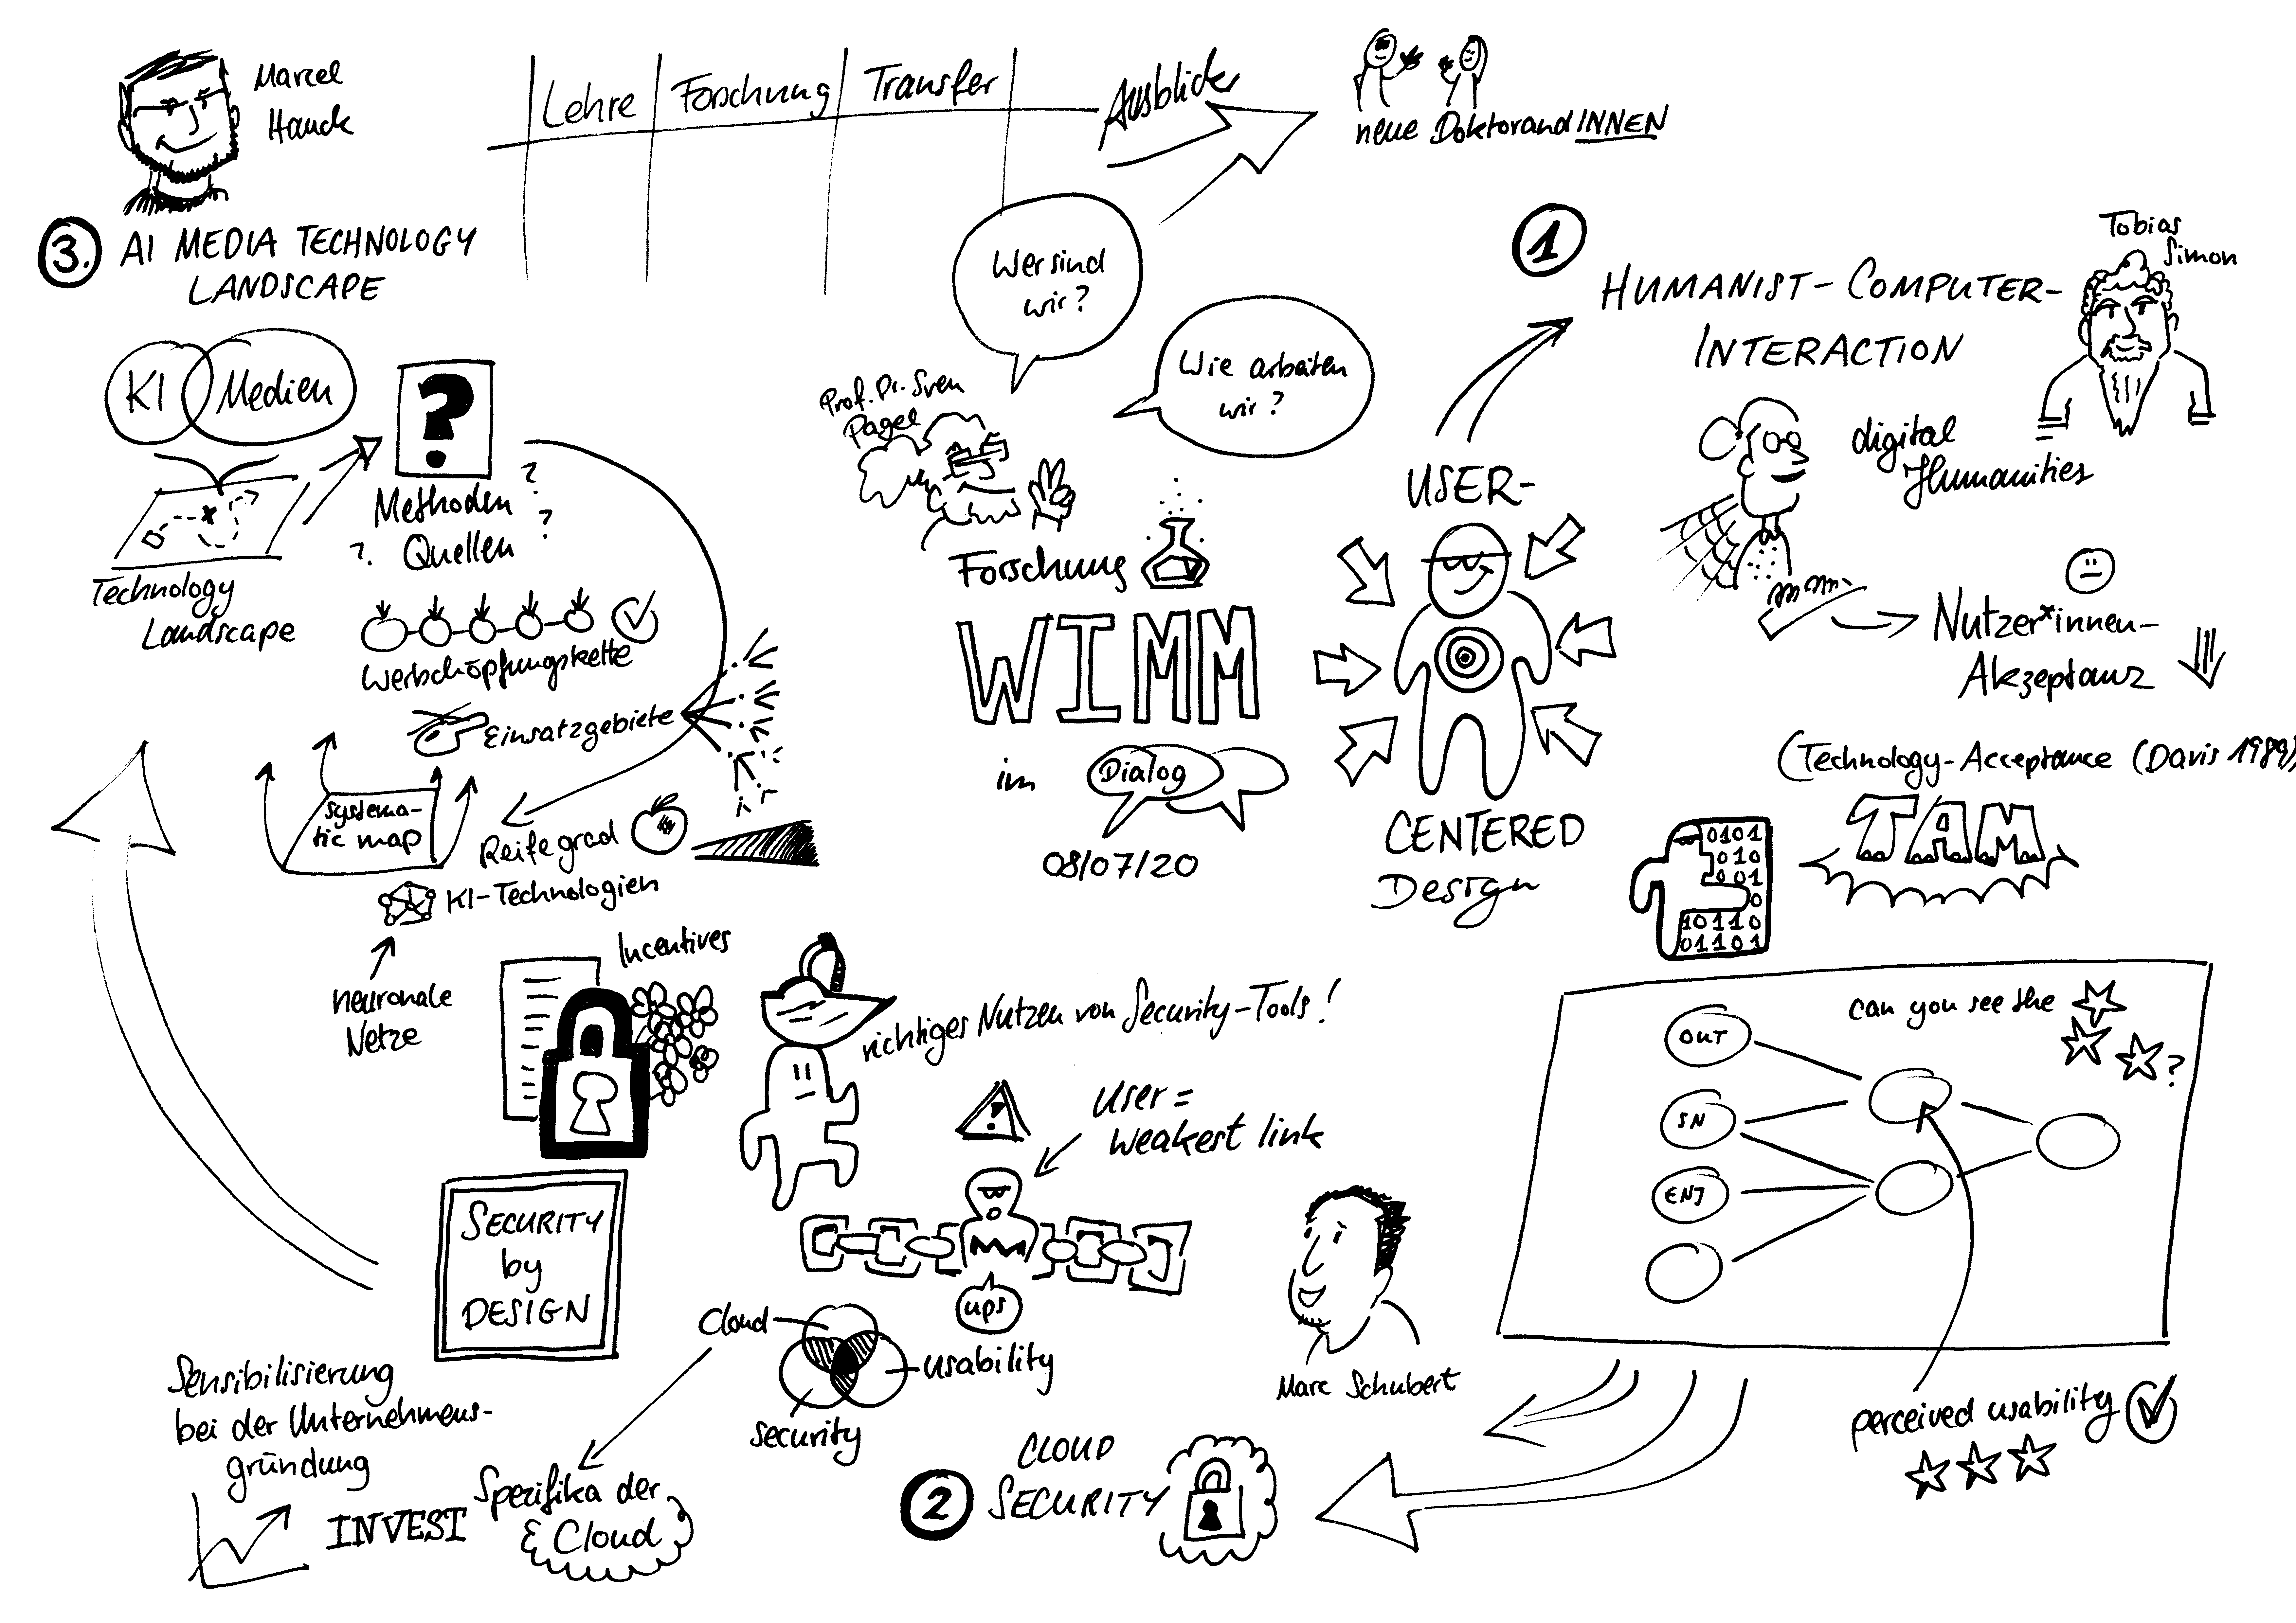 Marcel
Hauck
Lehre
Forschung
Transfer
Ausblick
neue DoktorandINNEN
3. AI MEDIA TECHNOLOGY
LANDSCAPE
KI
Medien
?
Methoden ?
? Quellen ?
Technology
Landscape
Wertschöpfungskette
Einsatzgebiete
systema-
tic map
Reifegrad
KI-Technologien
neuronale
Netze
Wer sind
wir?
Wie arbeiten
wir?
Prof. Dr. Sven
Pagel
Forschung
WIMM
im
Dialog
08/07/20
USER-
CENTERED
Design
1
HUMANIST-COMPUTER-
INTERACTION
Tobias
Simon
digital
Humanities
Nutzer*innen-
Akzeptanz
(Technology-Acceptance (Davis 1989)
TAM
0101
010
001
0
10110
01101
can you see the
?
OUT
SN
ENJ
perceived usability
Marc Schubert
2
CLOUD
SECURITY
Incentives
richtiges Nutzen von Security-Tools!
!
User =
weakest link
ups
Cloud
usability
security
SECURITY
by
DESIGN
Sensibilisierung
bei der Unternehmens-
gründung
INVEST
Spezifika der
Cloud